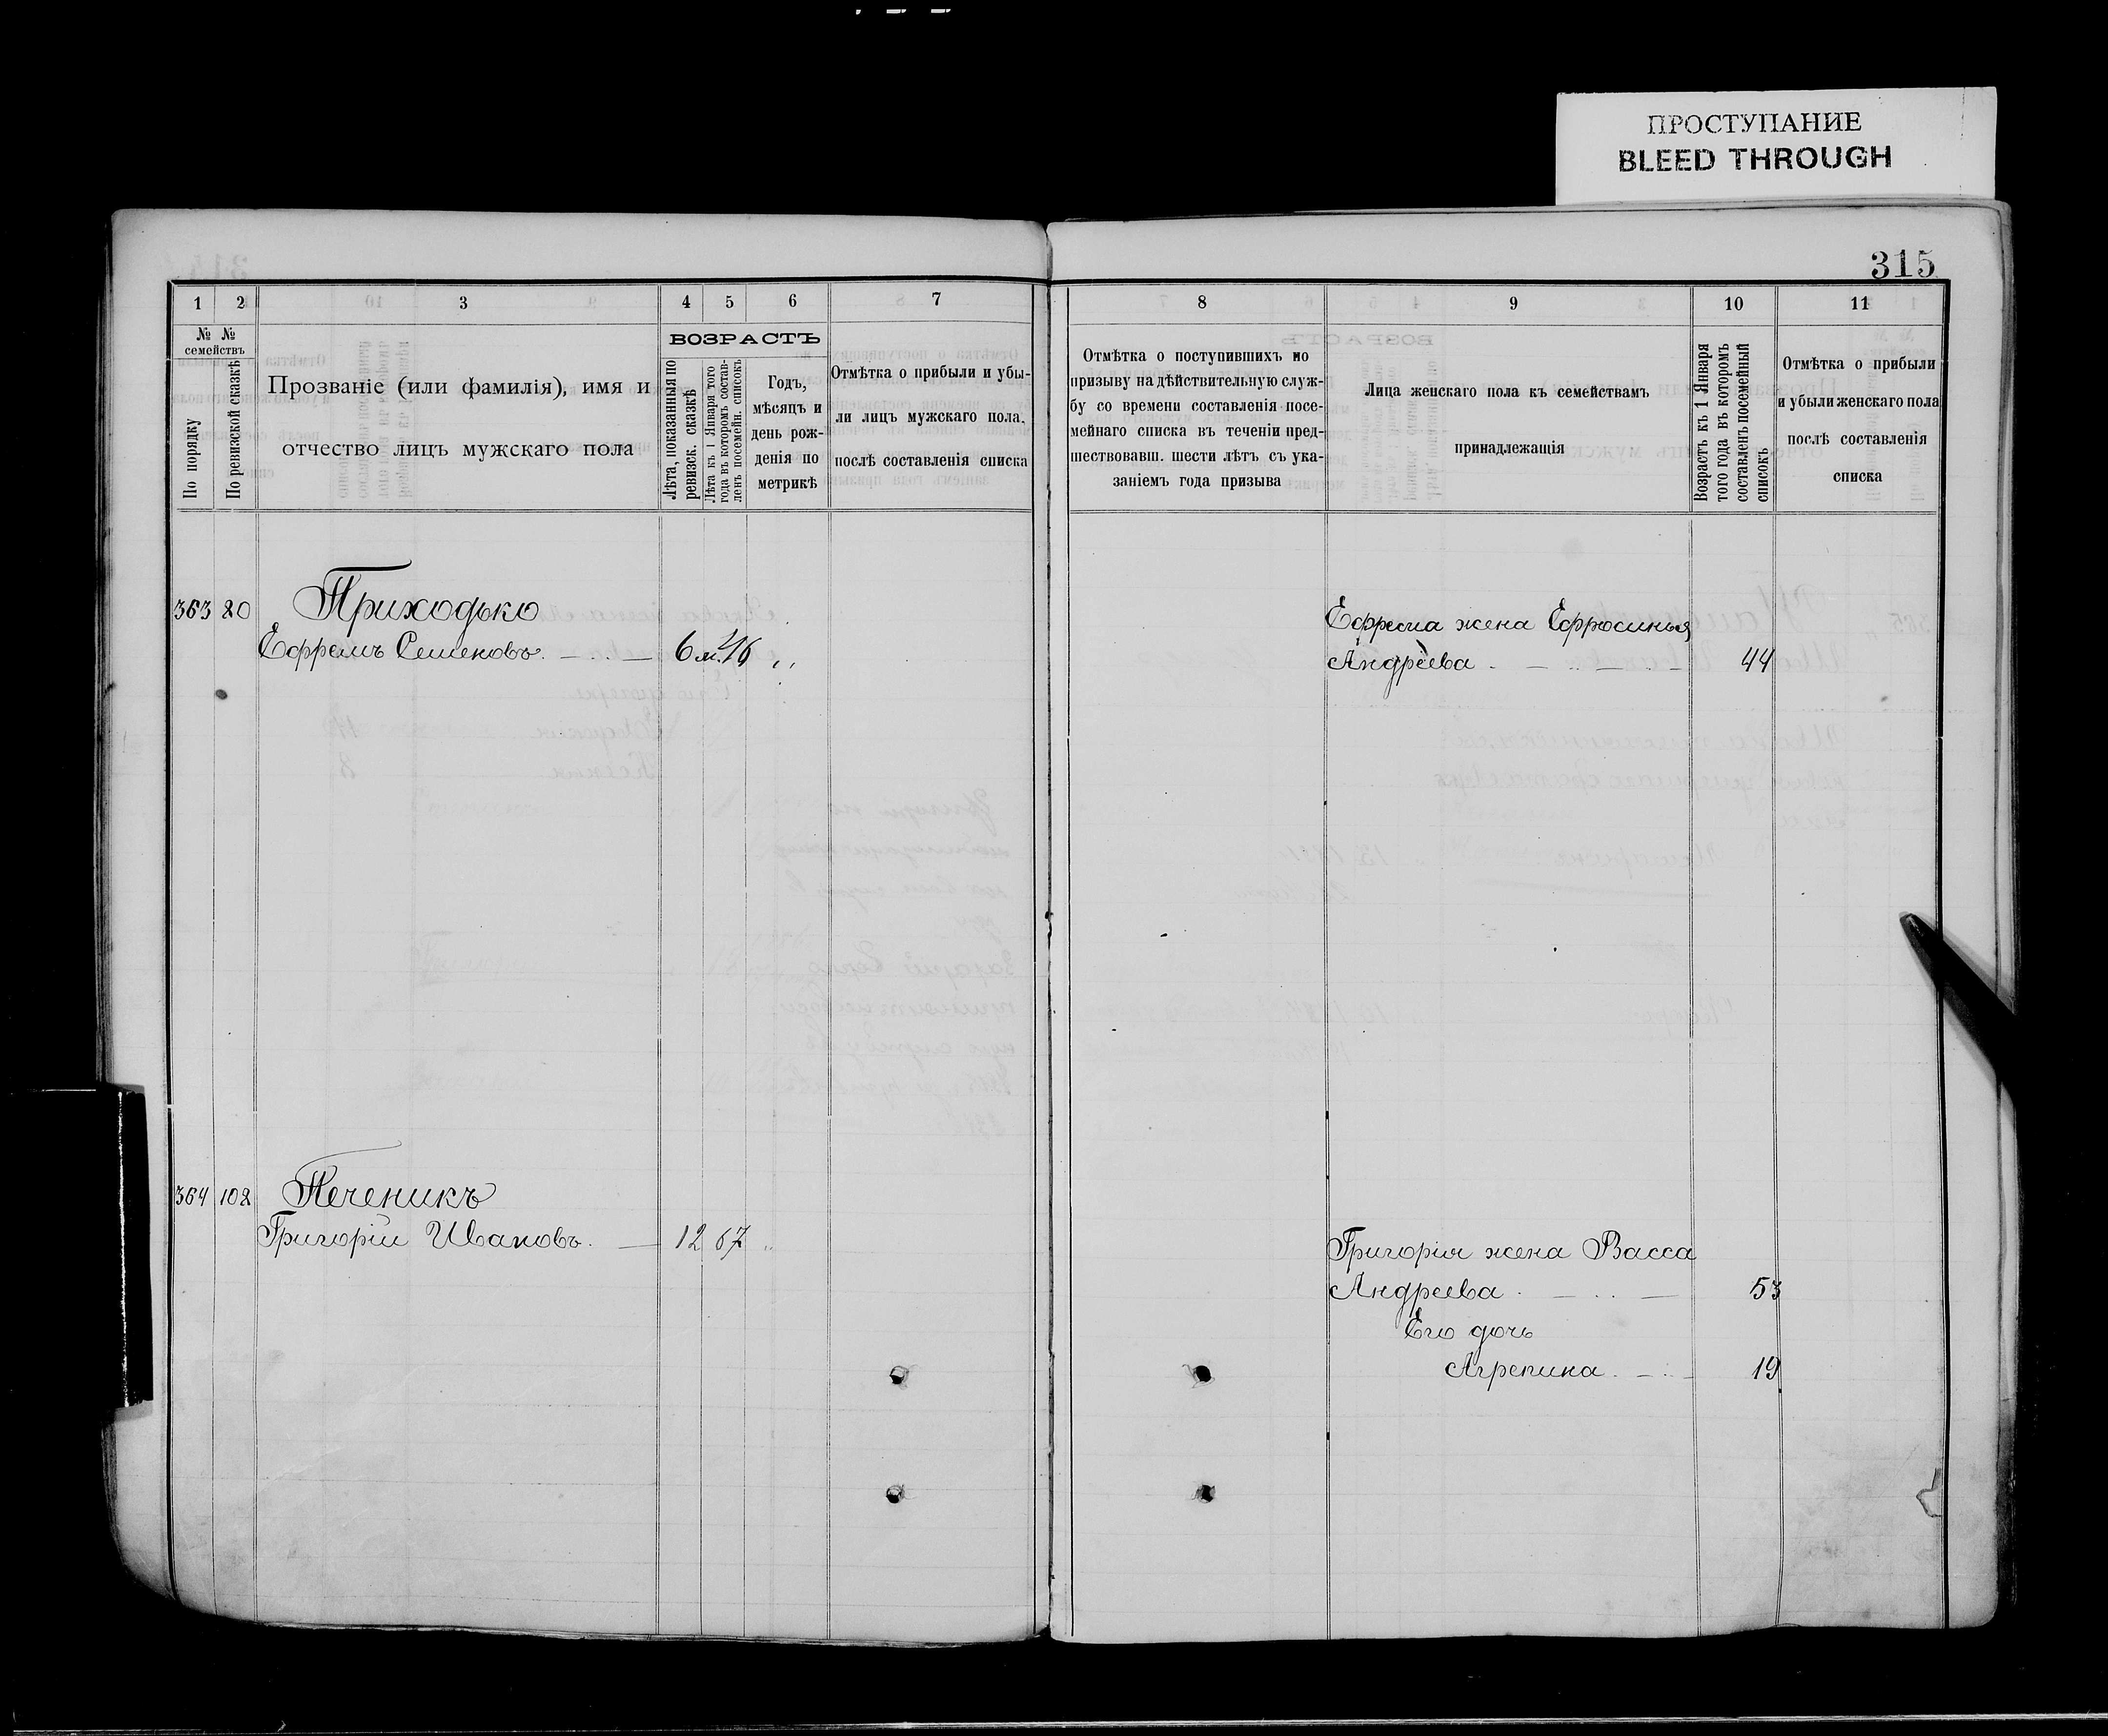 ПРОСТУПАНИЕ
BLEED THROUGH
315
1 2 3 4 5 6 7
№ № семействъ
По порядку
По ревизской сказкѣ
Прозваніе (или фамилія), имя и
отчество лицъ мужскаго пола
ВОЗРАСТЪ
Лѣта, показанныя по
ревизск. сказкѣ
Лѣта къ 1 Января того
года въ которомъ состав-
ленъ посемейн. списокъ
Годъ,
мѣсяцъ и
день рож-
денія по
метрикѣ
Отмѣтка о прибыли и убы-
ли лицъ мужскаго пола,
послѣ составленія списка
363 20 Приходько
Ефремъ Семеновъ. 6 м. 46 „
364 102 Печеникъ
Григорій Ивановъ. 12 67 „
8 9 10 11
Отмѣтка о поступившихъ по
призыву на дѣйствительную служ-
бу со времени составленія посе-
мейнаго списка въ теченіи пред-
шествовавш. шести лѣтъ съ ука-
заніемъ года призыва
Лица женскаго пола къ семействамъ
принадлежащія
Возрастъ къ 1 Января
того года въ которомъ
составленъ посемейный
списокъ
Отмѣтка о прибыли
и убыли женскаго пола
послѣ составленія
списка
Ефрема жена Ефросинья
Андрѣева 44
Григорія жена Васса
Андреева 53
Его дочь
Агрепина 19